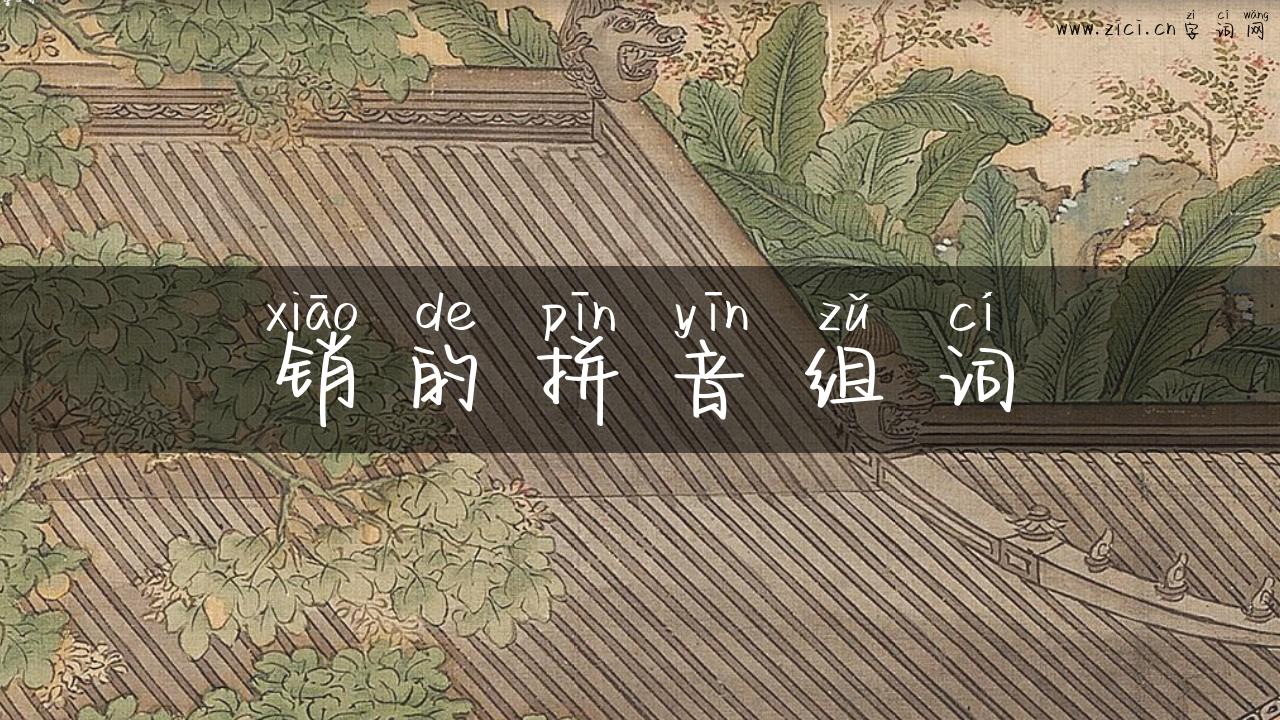 zì cí wǎng
www.zici.cn 字词网
xiāo de pīn yīn zǔ cí
销的拼音组词